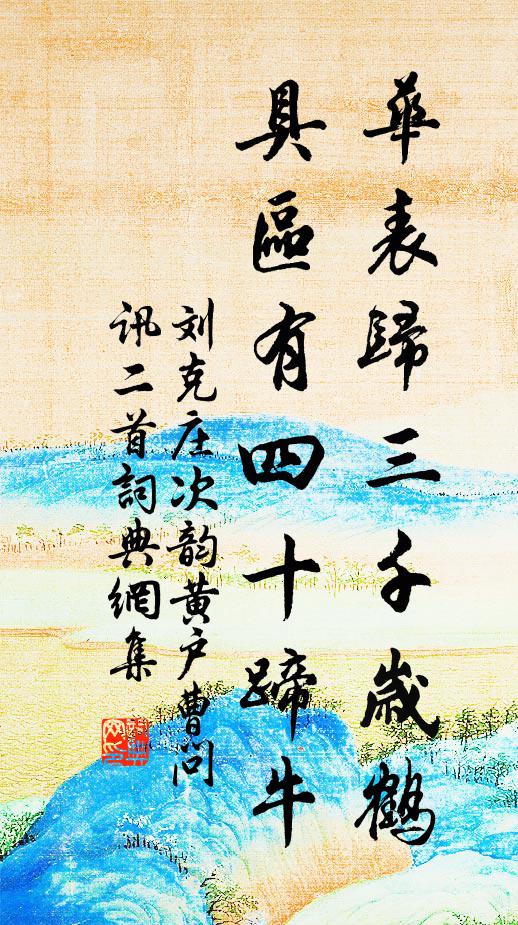 華表歸三千歲鶴
具區有四十蹄牛
刘克庄次韵黄户曹问
讯二首詞典網集